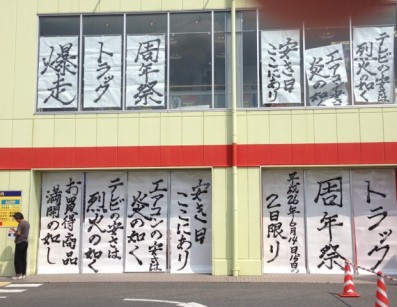 周年祭
トラック
爆走
テレビの安さは
烈火の如く
エアコンの安さは
炎の如く
安さ日
ここにあり
安さ日
ここにあり
エアコンの安さは
炎の如く
テレビの安さは
烈火の如く
お買得商品
満開の如し
トラック
周年祭
平成26年6月14日15日の
2日限り